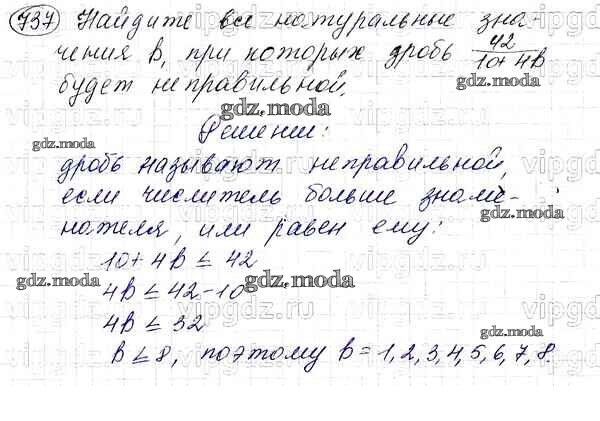 737 Найдите все натуральные зна-
чения в, при которых дробь 42/10+4в
будет неправильной.
gdz.moda
gdz.moda
Решение:
gdz.moda
дробь называют неправильной,
если числитель больше знаме-
gdz.moda
нателя, или равен ему:
10+4в ≤ 42
gdz.moda
gdz.moda
4в ≤ 42-10
4в ≤ 32
gdz.moda
в ≤ 8, поэтому в = 1, 2, 3, 4, 5, 6, 7, 8.
vipgdz.ru